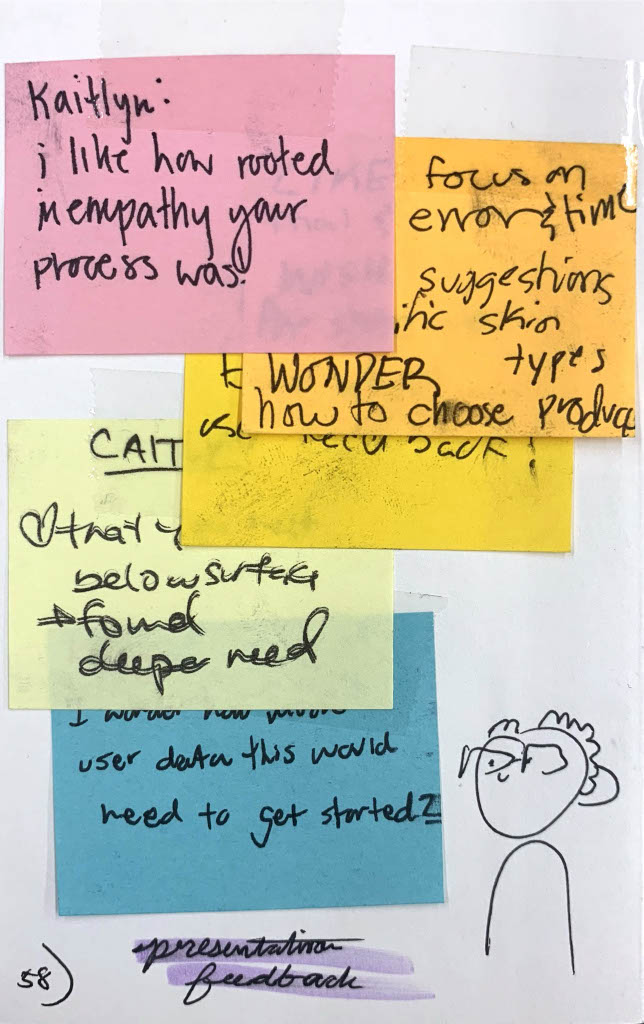 Kaitlyn:
i like how rooted
in empathy your
process was!
focus on
error & time
suggestions
ific skin
types
WONDER
how to choose produc
back!
CAIT
♡ that y
below surface
→ found
deeper need
I wonder how much
user data this would
need to get started?
presentation
feedback
58)